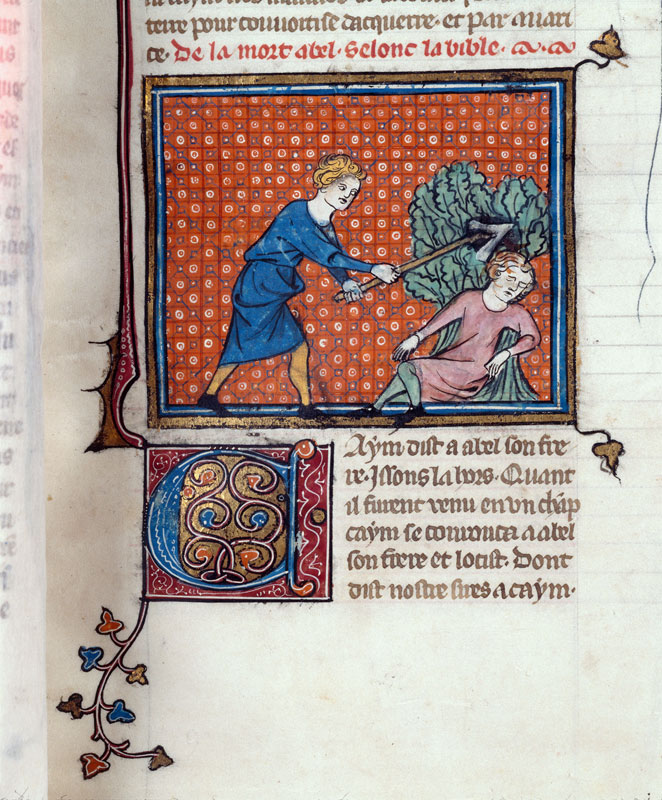 terre pour couuoitise dacquerre· et par auari
ce· De la mort abel· selonc la bible·
CAym dist a abel son fre
re· Issons la hors· Quant
il furent venu en vn chāp
caym se courouca a abel
son frere et locist· Dont
dist nostre sires a caym·